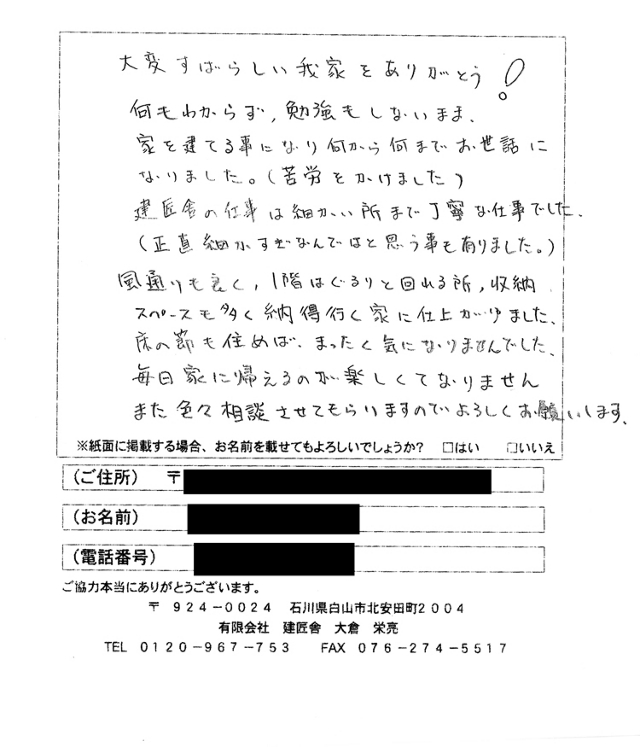 大変すばらしい我家をありがとう!
何もわからず,勉強もしないまま、
家を建てる事になり何から何までお世話に
なりました。(苦労をかけました)
建匠舎の仕事は細かい所まで丁寧な仕事でした、
(正直細かすぎなんではと思う事も有りました。)
風通りも良く,1階はぐるりと回れる所,収納
スペースも多く納得行く家に仕上がりました、
床の節も住めば、まったく気になりませんでした、
毎日家に帰えるのが楽しくてなりません
また色々相談させてもらいますのでよろしくお願いします、
※紙面に掲載する場合、お名前を載せてもよろしいでしょうか? □はい □いいえ
(ご住所) 〒
(お名前)
(電話番号)
ご協力本当にありがとうございます。
〒 924-0024 石川県白山市北安田町2004
有限会社 建匠舎 大倉 栄亮
TEL 0120-967-753 FAX 076-274-5517